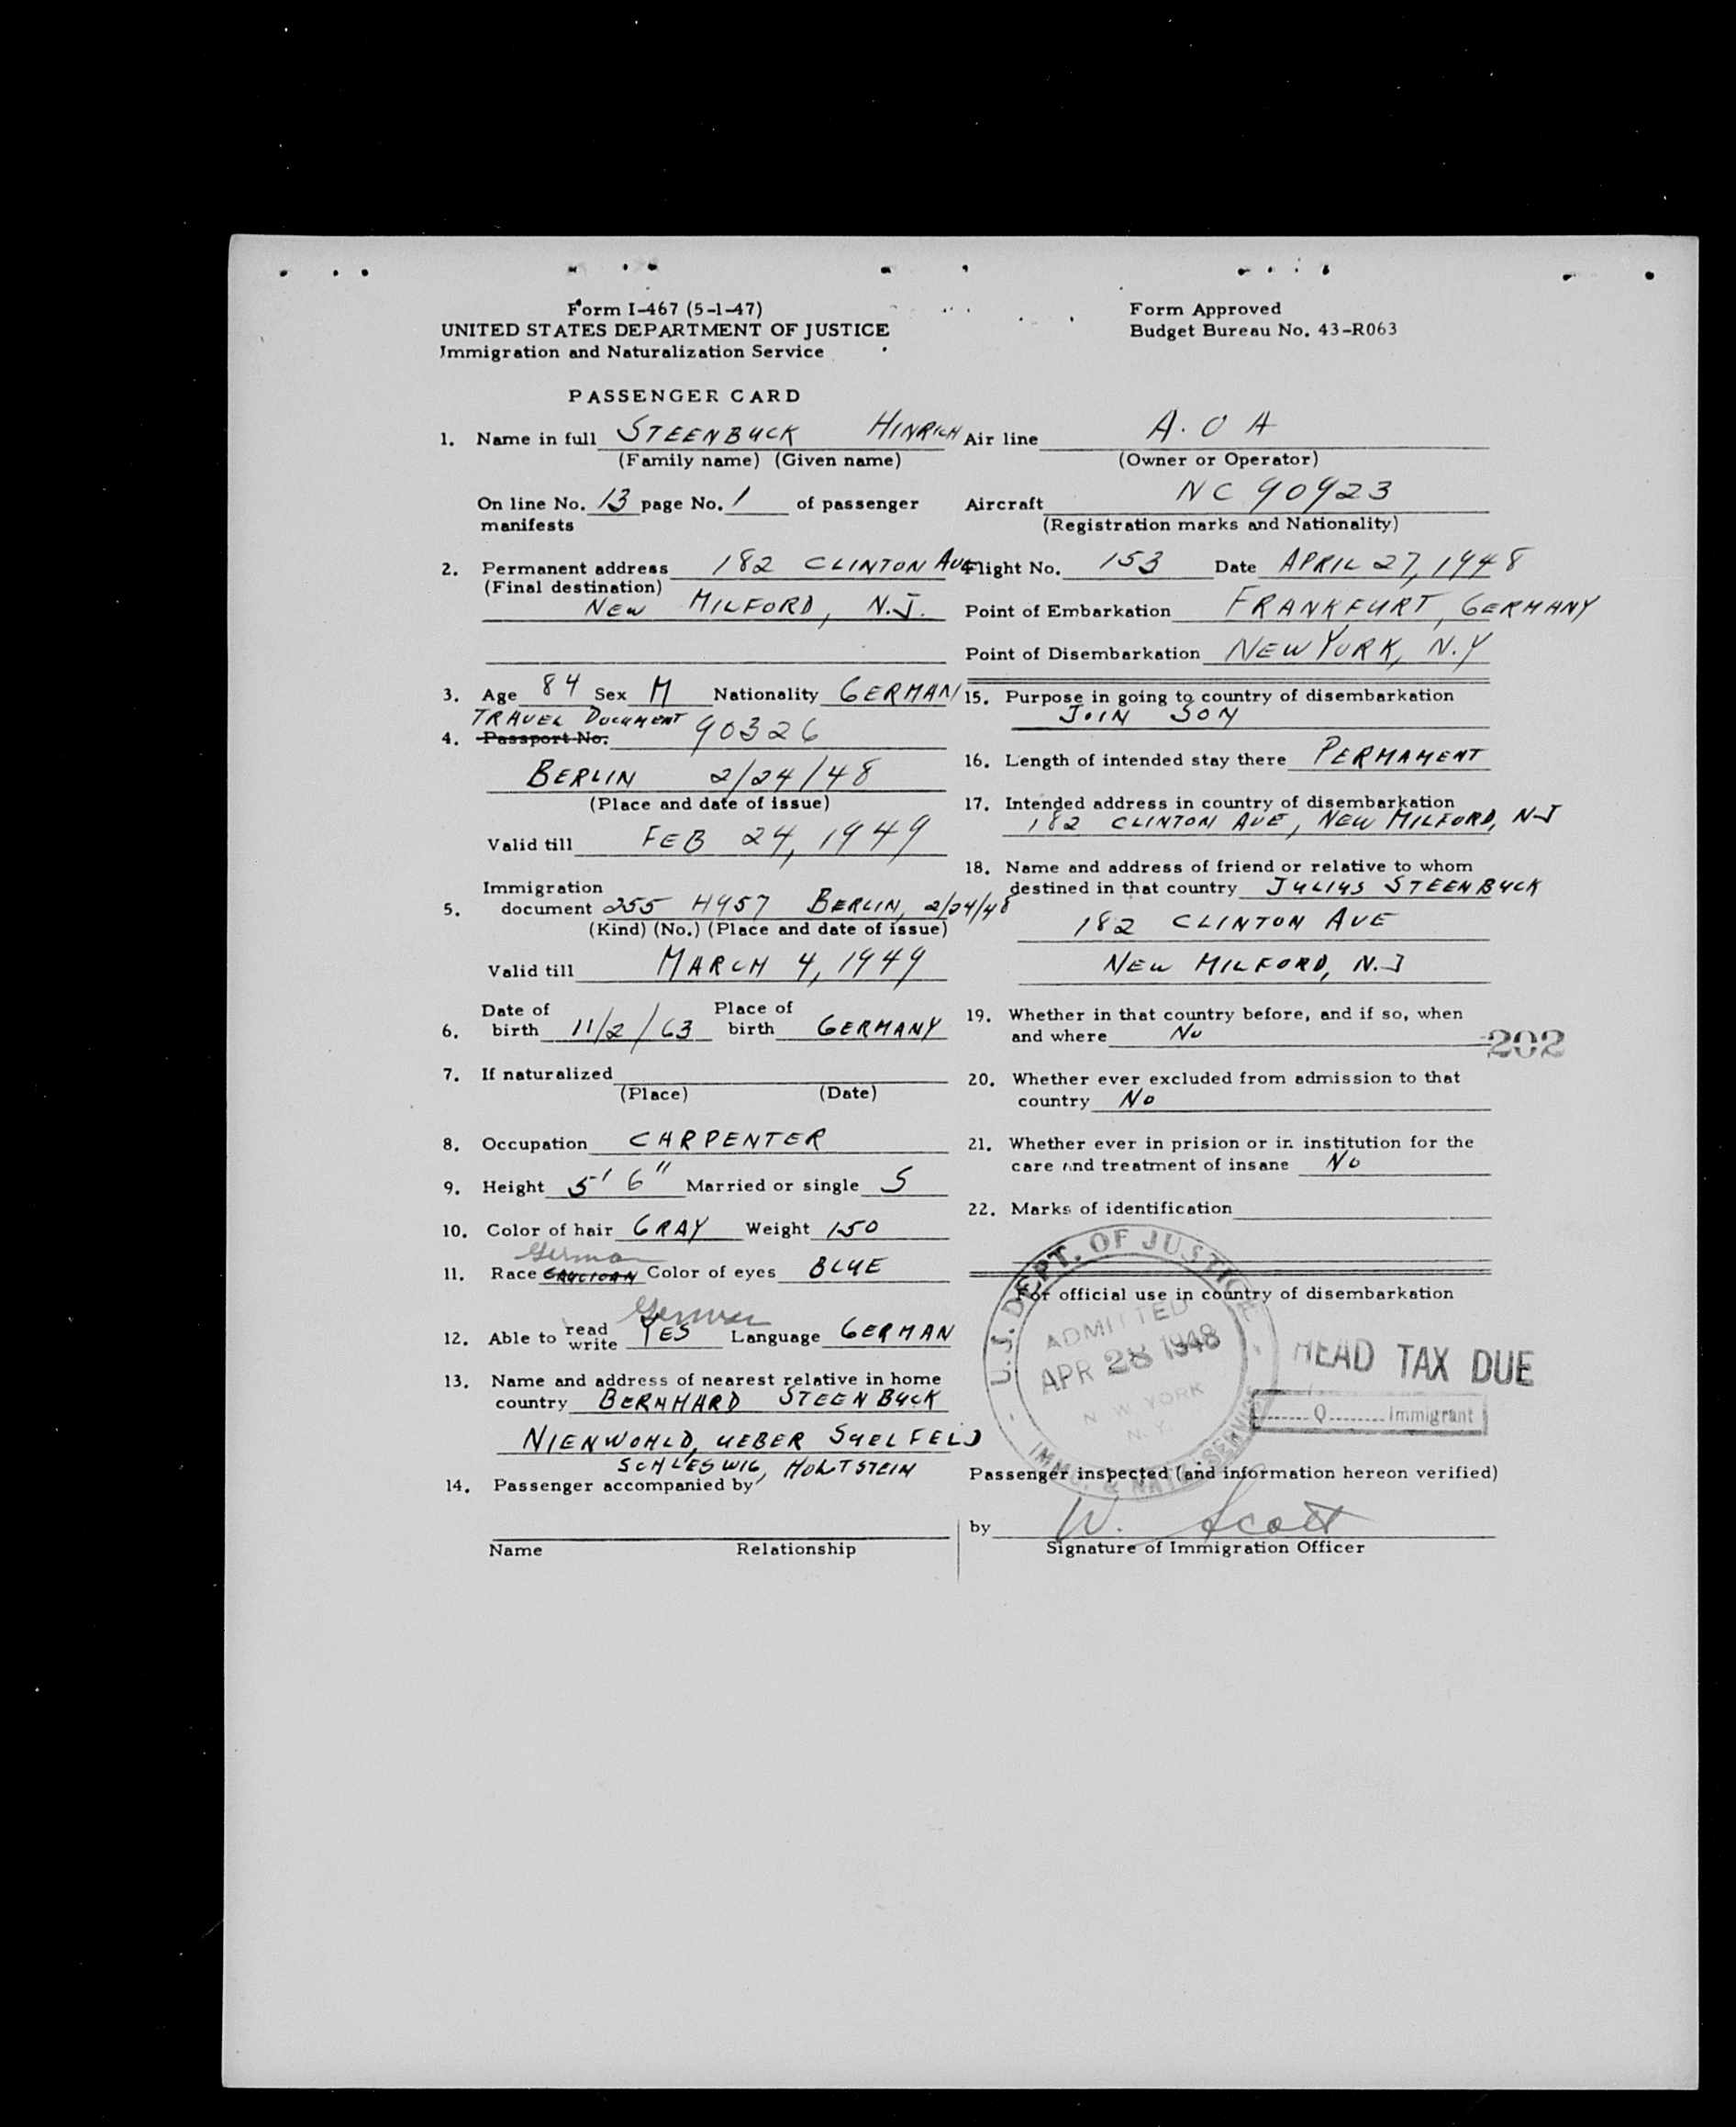 Form I-467 (5-1-47)
UNITED STATES DEPARTMENT OF JUSTICE
Immigration and Naturalization Service
Form Approved
Budget Bureau No. 43-R063
PASSENGER CARD
1. Name in full STEENBUCK HINRICH
(Family name) (Given name)
On line No. 13 page No. 1 of passenger
manifests
2. Permanent address 182 CLINTON AVE
(Final destination)
NEW MILFORD, N.J.
3. Age 84 Sex M Nationality GERMAN
TRAVEL DOCUMENT
4. Passport No. 90326
BERLIN 2/24/48
(Place and date of issue)
Valid till FEB 24, 1949
Immigration
5. document 255 H957 BERLIN, 2/24/48
(Kind) (No.) (Place and date of issue)
Valid till MARCH 4, 1949
Date of Place of
6. birth 11/2/63 birth GERMANY
7. If naturalized
(Place) (Date)
8. Occupation CARPENTER
9. Height 5' 6" Married or single S
10. Color of hair GRAY Weight 150
German
11. Race CAUCIOAN Color of eyes BLUE
German
12. Able to read write YES Language GERMAN
13. Name and address of nearest relative in home
country BERNHARD STEENBUCK
NIENWOHLD, UEBER SUELFELD
SCHLESWIG, HOLTSTEIN
14. Passenger accompanied by
Name Relationship
Air line A.O A
(Owner or Operator)
Aircraft NC 90923
(Registration marks and Nationality)
Flight No. 153 Date APRIL 27, 1948
Point of Embarkation FRANKFURT, GERMANY
Point of Disembarkation NEW YORK, N.Y
15. Purpose in going to country of disembarkation
JOIN SON
16. Length of intended stay there PERMANENT
17. Intended address in country of disembarkation
182 CLINTON AVE, NEW MILFORD, NJ
18. Name and address of friend or relative to whom
destined in that country JULIUS STEENBUCK
182 CLINTON AVE
NEW MILFORD, N.J
19. Whether in that country before, and if so, when
and where No
202
20. Whether ever excluded from admission to that
country No
21. Whether ever in prision or in institution for the
care and treatment of insane No
22. Marks of identification
For official use in country of disembarkation
U.S. DEPT. OF JUSTICE
ADMITTED
APR 28 1948
NEW YORK
N.Y.
IMMG. & NATZ. SERVICE
HEAD TAX DUE
Q Immigrant
Passenger inspected (and information hereon verified)
by W. Scott
Signature of Immigration Officer